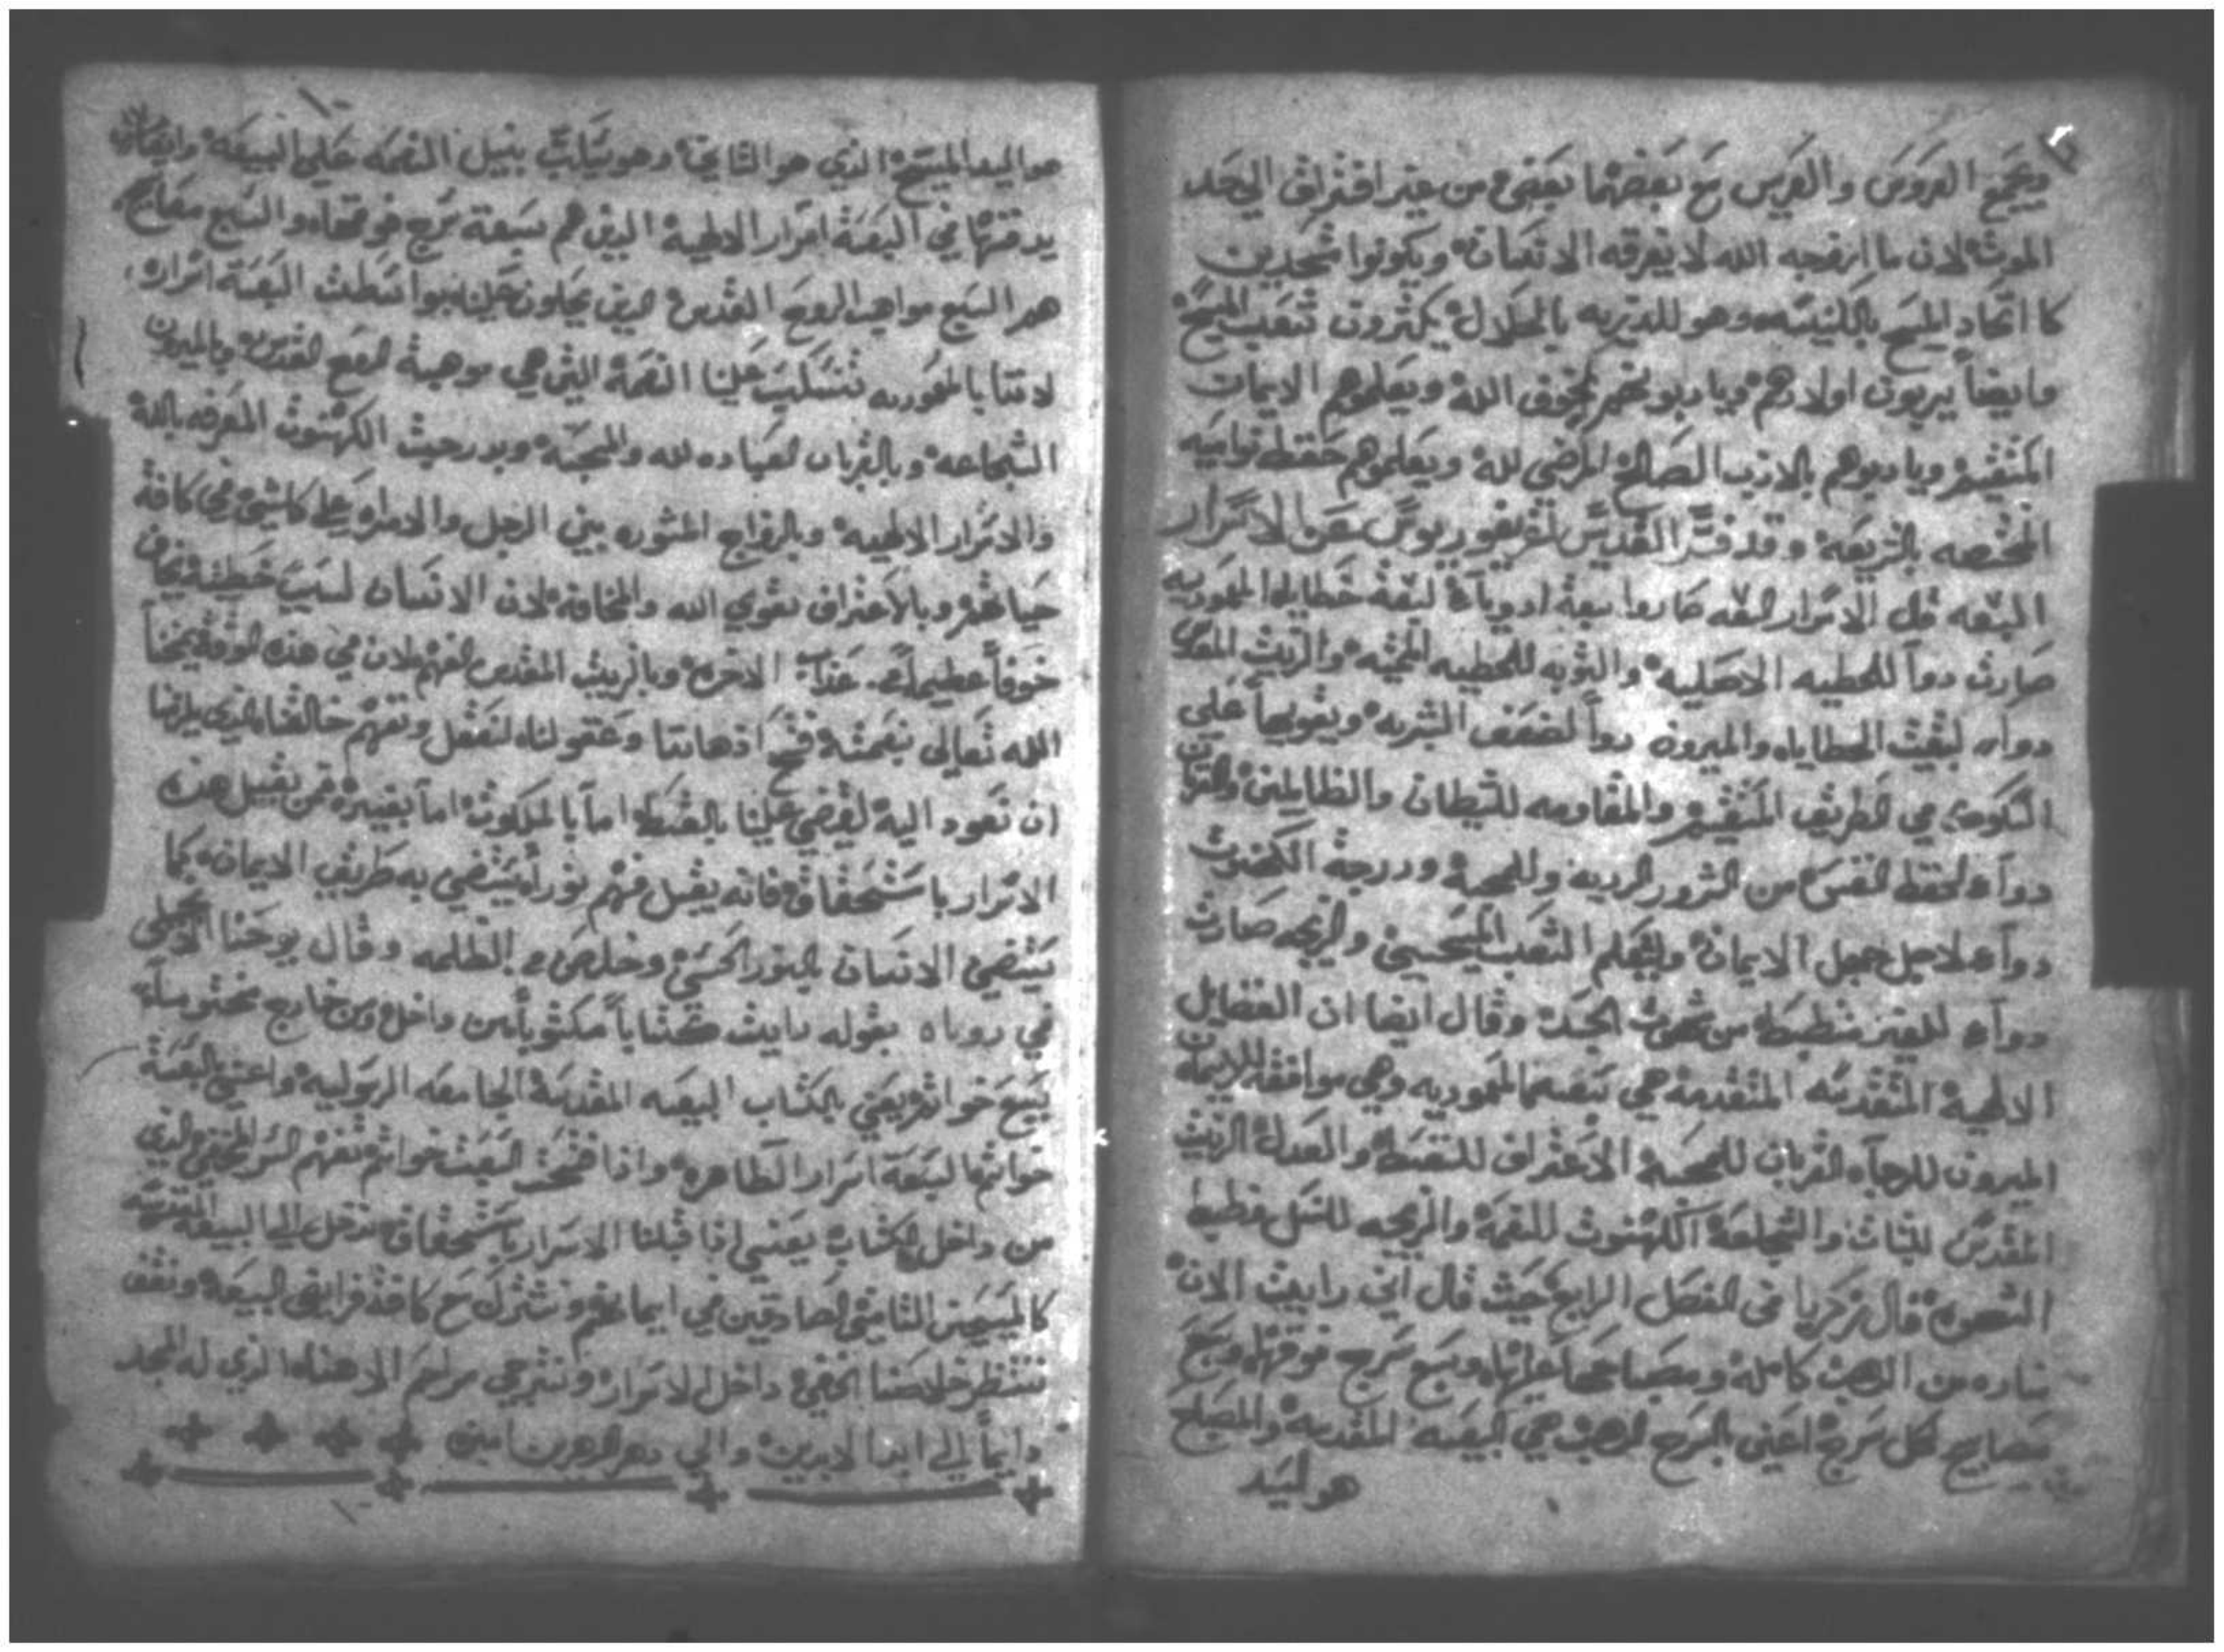 ويجمع العروس والعريس مع بعضهما بعض من غير افتراق الي حد
الموت لان ما ازوجه الله لا يفرقه الانسان ويكونوا متحدين
كاتحاد المسيح بالكنيسه وهو للذريه بالحلال يكثرون شعب المسيح
وايضاً يربون اولادهم ويادبونهم بخوف الله ويعلموهم الايمان
المستقيم ويادبوهم بالادب الصالح المرضي لله ويعلموهم حفظ نواميه
المختصه بالشريعه وقد فسر القديس غريغوريوس عن الاسرار
السبعه قال الاسرار السبعه صاروا سبعة ادوية لسبعة خطايا المعموديه
صارت دوآ للخطيه الاصليه والتوبه للخطيه المميته والزيت المقدس
دوآء لبقيت الخطايا والميرون دوآ لضعف البشريه وتقويها علي
السلوك في الطريق المستقيم والمقاومه للشيطان والظالمين والقربان
دوآء لحفظ النفس من الشرور الرديه وللمحبة ودرجة الكهنوت
دوآء لاجل جهل الايمان وليعلم الشعب المسيحيين والزيجه صارت
دوآء للغير منضبط من شهوت الجسد وقال ايضا ان الفضايل
الالهية المقدسه المتقدمة هي سبعه المعموديه وهي موافقة للايمان
الميرون للرجآء القربان للمحبة الاعتراف للقسط والعدل الزيت
المقدس للثبات والشجاعة الكهنوت للنعمة والزيجه للنسل وضبط
الشهوه قال زكريا في الفصل الرابع حيث قال اني رايت الان
مناره من الدهب كامله ومصباحها عليها وسبع سرج فوقها وسبع
مصابيح لكل سرج اعني السرج الدهب هي البيعه المقدسه والمصباح
هو السيد
هو السيد المسيح الذي هو الثاني وهو يثبت بنيل النعمه علي البيعه وايضاً
يدفنها في السبعة اسرار الالهية الذين هم سبعة سرج فوقها والسبع مصابيح
هم السبع مواهب الروح القدس الذين يحلون علينا بواسطت السبعة اسرار
لاننا بالمعموديه تنسكب علينا النعمة التي هي موهبة الروح القدس وبالميرون
الشجاعه وبالقربان العباده لله والمحبه وبدرجت الكهنوت المعرفه بالله
والاسرار الالهيه وبالزواج المشوره بين الرجل والامراه علي كل شي في كافة
حياتهم وبالاعتراف تقوي الله والمخافة لان الانسان لسبب خطيته يخاف
خوفاً عظيماً من عذاب الاخره وبالزيت المقدس الفهم لان في هذه الوقت يمنحنا
الله تعالي نعمته فتح اذهاننا وعقولنا لنعقل ونفهم خالقنا الذي يلزمنا
ان نعود اليه ليقضي علينا بالقسط اما بالملكوت اما بغيره فمن يقبل هذه
الاسرار باستحقاق فانه يقبل فهم نوراً يستضي به طريق الايمان كما
يستضي الانسان بالنور الحسي وخلاص من الظلمه وقال يوحنا الانجيلي
في روياه بقوله رايت كتاباً مكتوباً من داخل ومن خارج مختوماً
بسبع خواتم يعني بالكتاب البيعه المقدسة الجامعه الرسوليه واعني السبعة
خواتم السبعة اسرار الطاهره واذا فتحت السبعت خواتم نفهم السر المخفي الذي
من داخل الكتاب يعني اذا قبلنا الاسرار باستحقاق ندخل الي البيعه المقدسه
كالمسيحيين الثابتين الصادقين في ايمانهم ونشترك مع كافة فرايض البيعه ونقف
ننتظر خلاصنا المخفي داخل الاسرار ونترجي مراحم الاهنا الذي له المجد
دايماً الي ابد الابدين والي دهر الدهرين امين